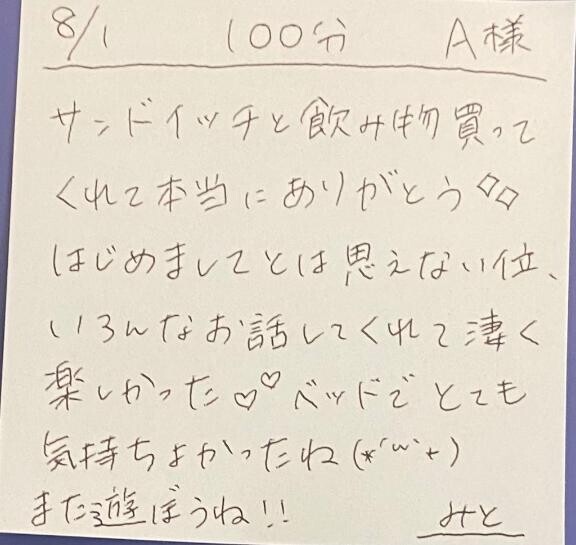 8/1 100分 A様
サンドイッチと飲み物買って
くれて本当にありがとう◇◇
はじめましてとは思えない位、
いろんなお話してくれて凄く
楽しかった♡♡ベッドでとても
気持ちよかったね(*´ω`*)
また遊ぼうね!!
みと